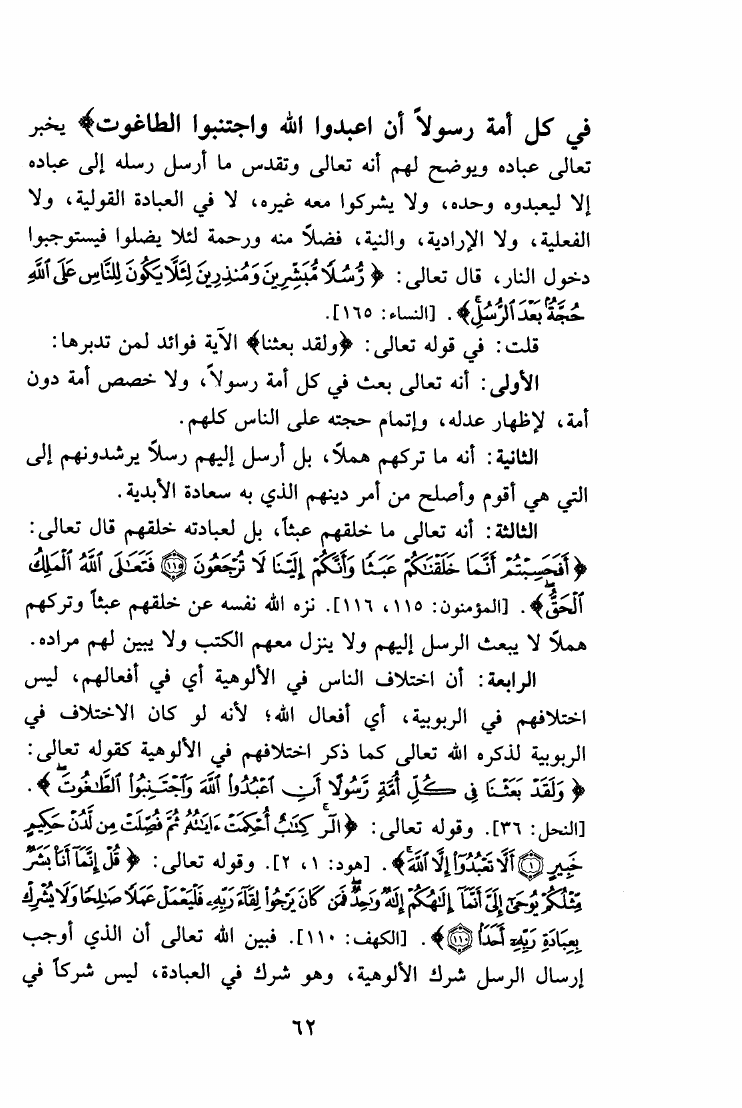 في كل أمة رسولاً أن اعبدوا الله واجتنبوا الطاغوت﴾ يخبر
تعالى عباده ويوضح لهم أنه تعالى وتقدس ما أرسل رسله إلى عباده
إلا ليعبدوه وحده، ولا يشركوا معه غيره، لا في العبادة القولية، ولا
الفعلية، ولا الإرادية، والنية، فضلاً منه ورحمة لئلا يضلوا فيستوجبوا
دخول النار، قال تعالى: ﴿رُّسُلًا مُّبَشِّرِينَ وَمُنذِرِينَ لِئَلَّا يَكُونَ لِلنَّاسِ عَلَى ٱللَّهِ
حُجَّةٌۢ بَعْدَ ٱلرُّسُلِۚ﴾. [النساء: ١٦٥].
قلت: في قوله تعالى: ﴿ولقد بعثنا﴾ الآية فوائد لمن تدبرها:
الأولى: أنه تعالى بعث في كل أمة رسولاً، ولا خصص أمة دون
أمة، لإظهار عدله، وإتمام حجته على الناس كلهم.
الثانية: أنه ما تركهم هملاً، بل أرسل إليهم رسلاً يرشدونهم إلى
التي هي أقوم وأصلح من أمر دينهم الذي به سعادة الأبدية.
الثالثة: أنه تعالى ما خلقهم عبثاً، بل لعبادته خلقهم قال تعالى:
﴿أَفَحَسِبْتُمْ أَنَّمَا خَلَقْنَٰكُمْ عَبَثًا وَأَنَّكُمْ إِلَيْنَا لَا تُرْجَعُونَ ١١٥ فَتَعَٰلَى ٱللَّهُ ٱلْمَلِكُ
ٱلْحَقُّۖ﴾. [المؤمنون: ١١٥، ١١٦]. نزه الله نفسه عن خلقهم عبثاً وتركهم
هملاً لا يبعث الرسل إليهم ولا ينزل معهم الكتب ولا يبين لهم مراده.
الرابعة: أن اختلاف الناس في الألوهية أي في أفعالهم، ليس
اختلافهم في الربوبية، أي أفعال الله؛ لأنه لو كان الاختلاف في
الربوبية لذكره الله تعالى كما ذكر اختلافهم في الألوهية كقوله تعالى:
﴿وَلَقَدْ بَعَثْنَا فِى كُلِّ أُمَّةٍ رَّسُولًا أَنِ ٱعْبُدُوا۟ ٱللَّهَ وَٱجْتَنِبُوا۟ ٱلطَّٰغُوتَۖ﴾.
[النحل: ٣٦]. وقوله تعالى: ﴿الٓرۚ كِتَٰبٌ أُحْكِمَتْ ءَايَٰتُهُۥ ثُمَّ فُصِّلَتْ مِن لَّدُنْ حَكِيمٍ
خَبِيرٍ ١ أَلَّا تَعْبُدُوٓا۟ إِلَّا ٱللَّهَۚ﴾. [هود: ١، ٢]. وقوله تعالى: ﴿قُلْ إِنَّمَآ أَنَا۠ بَشَرٌ
مِّثْلُكُمْ يُوحَىٰٓ إِلَىَّ أَنَّمَآ إِلَٰهُكُمْ إِلَٰهٌ وَٰحِدٌۖ فَمَن كَانَ يَرْجُوا۟ لِقَآءَ رَبِّهِۦ فَلْيَعْمَلْ عَمَلًا صَٰلِحًا وَلَا يُشْرِكْ
بِعِبَادَةِ رَبِّهِۦٓ أَحَدًۢا ١١٠﴾. [الكهف: ١١٠]. فبين الله تعالى أن الذي أوجب
إرسال الرسل شرك الألوهية، وهو شرك في العبادة، ليس شركاً في
٦٢